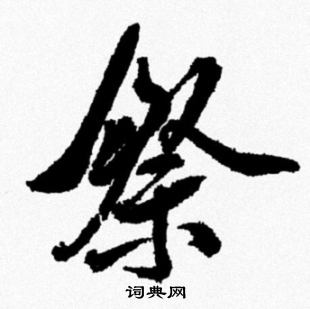 祭
词典网